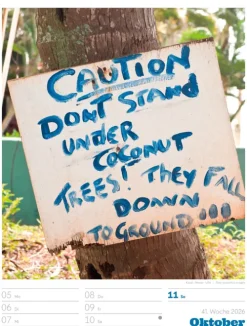 CAUTION
DON'T STAND
UNDER
COCONUT
TREES! THEY FALL
DOWN
TO GROUND!!!
05 Mo
08 Do
11 So
06 Di
09 Fr
07 Mi
10 Sa
41. Woche 2026
Oktober